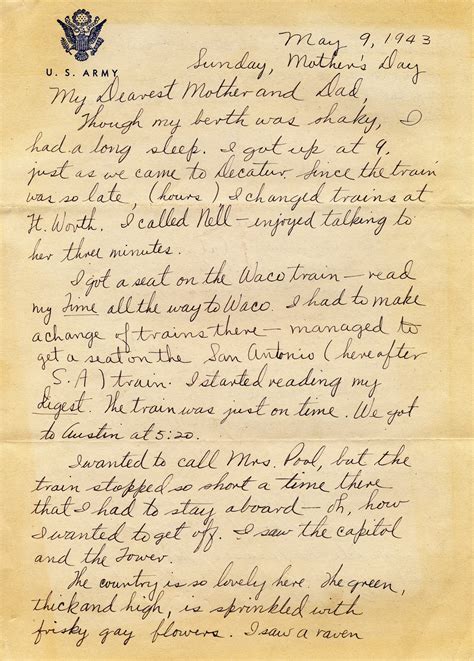 U. S. ARMY
May 9, 1943
Sunday, Mother's Day
My Dearest Mother and Dad,
Though my berth was shaky, I
had a long sleep. I got up at 9,
just as we came to Decatur. Since the train
was so late, (hours) I changed trains at
Ft. Worth. I called Nell – enjoyed talking to
her three minutes.
I got a seat on the Waco train – read
my Time all the way to Waco. I had to make
a change of trains there – managed to
get a seat on the San Antonio (hereafter
S. A) train. I started reading my
digest. The train was just on time. We got
to Austin at 5:20.
I wanted to call Mrs. Pool, but the
train stopped so short a time there
that I had to stay aboard – oh, how
I wanted to get off. I saw the capitol
and the Tower.
The country is so lovely here. The green,
thick and high, is sprinkled with
frisky gay flowers. I saw a raven